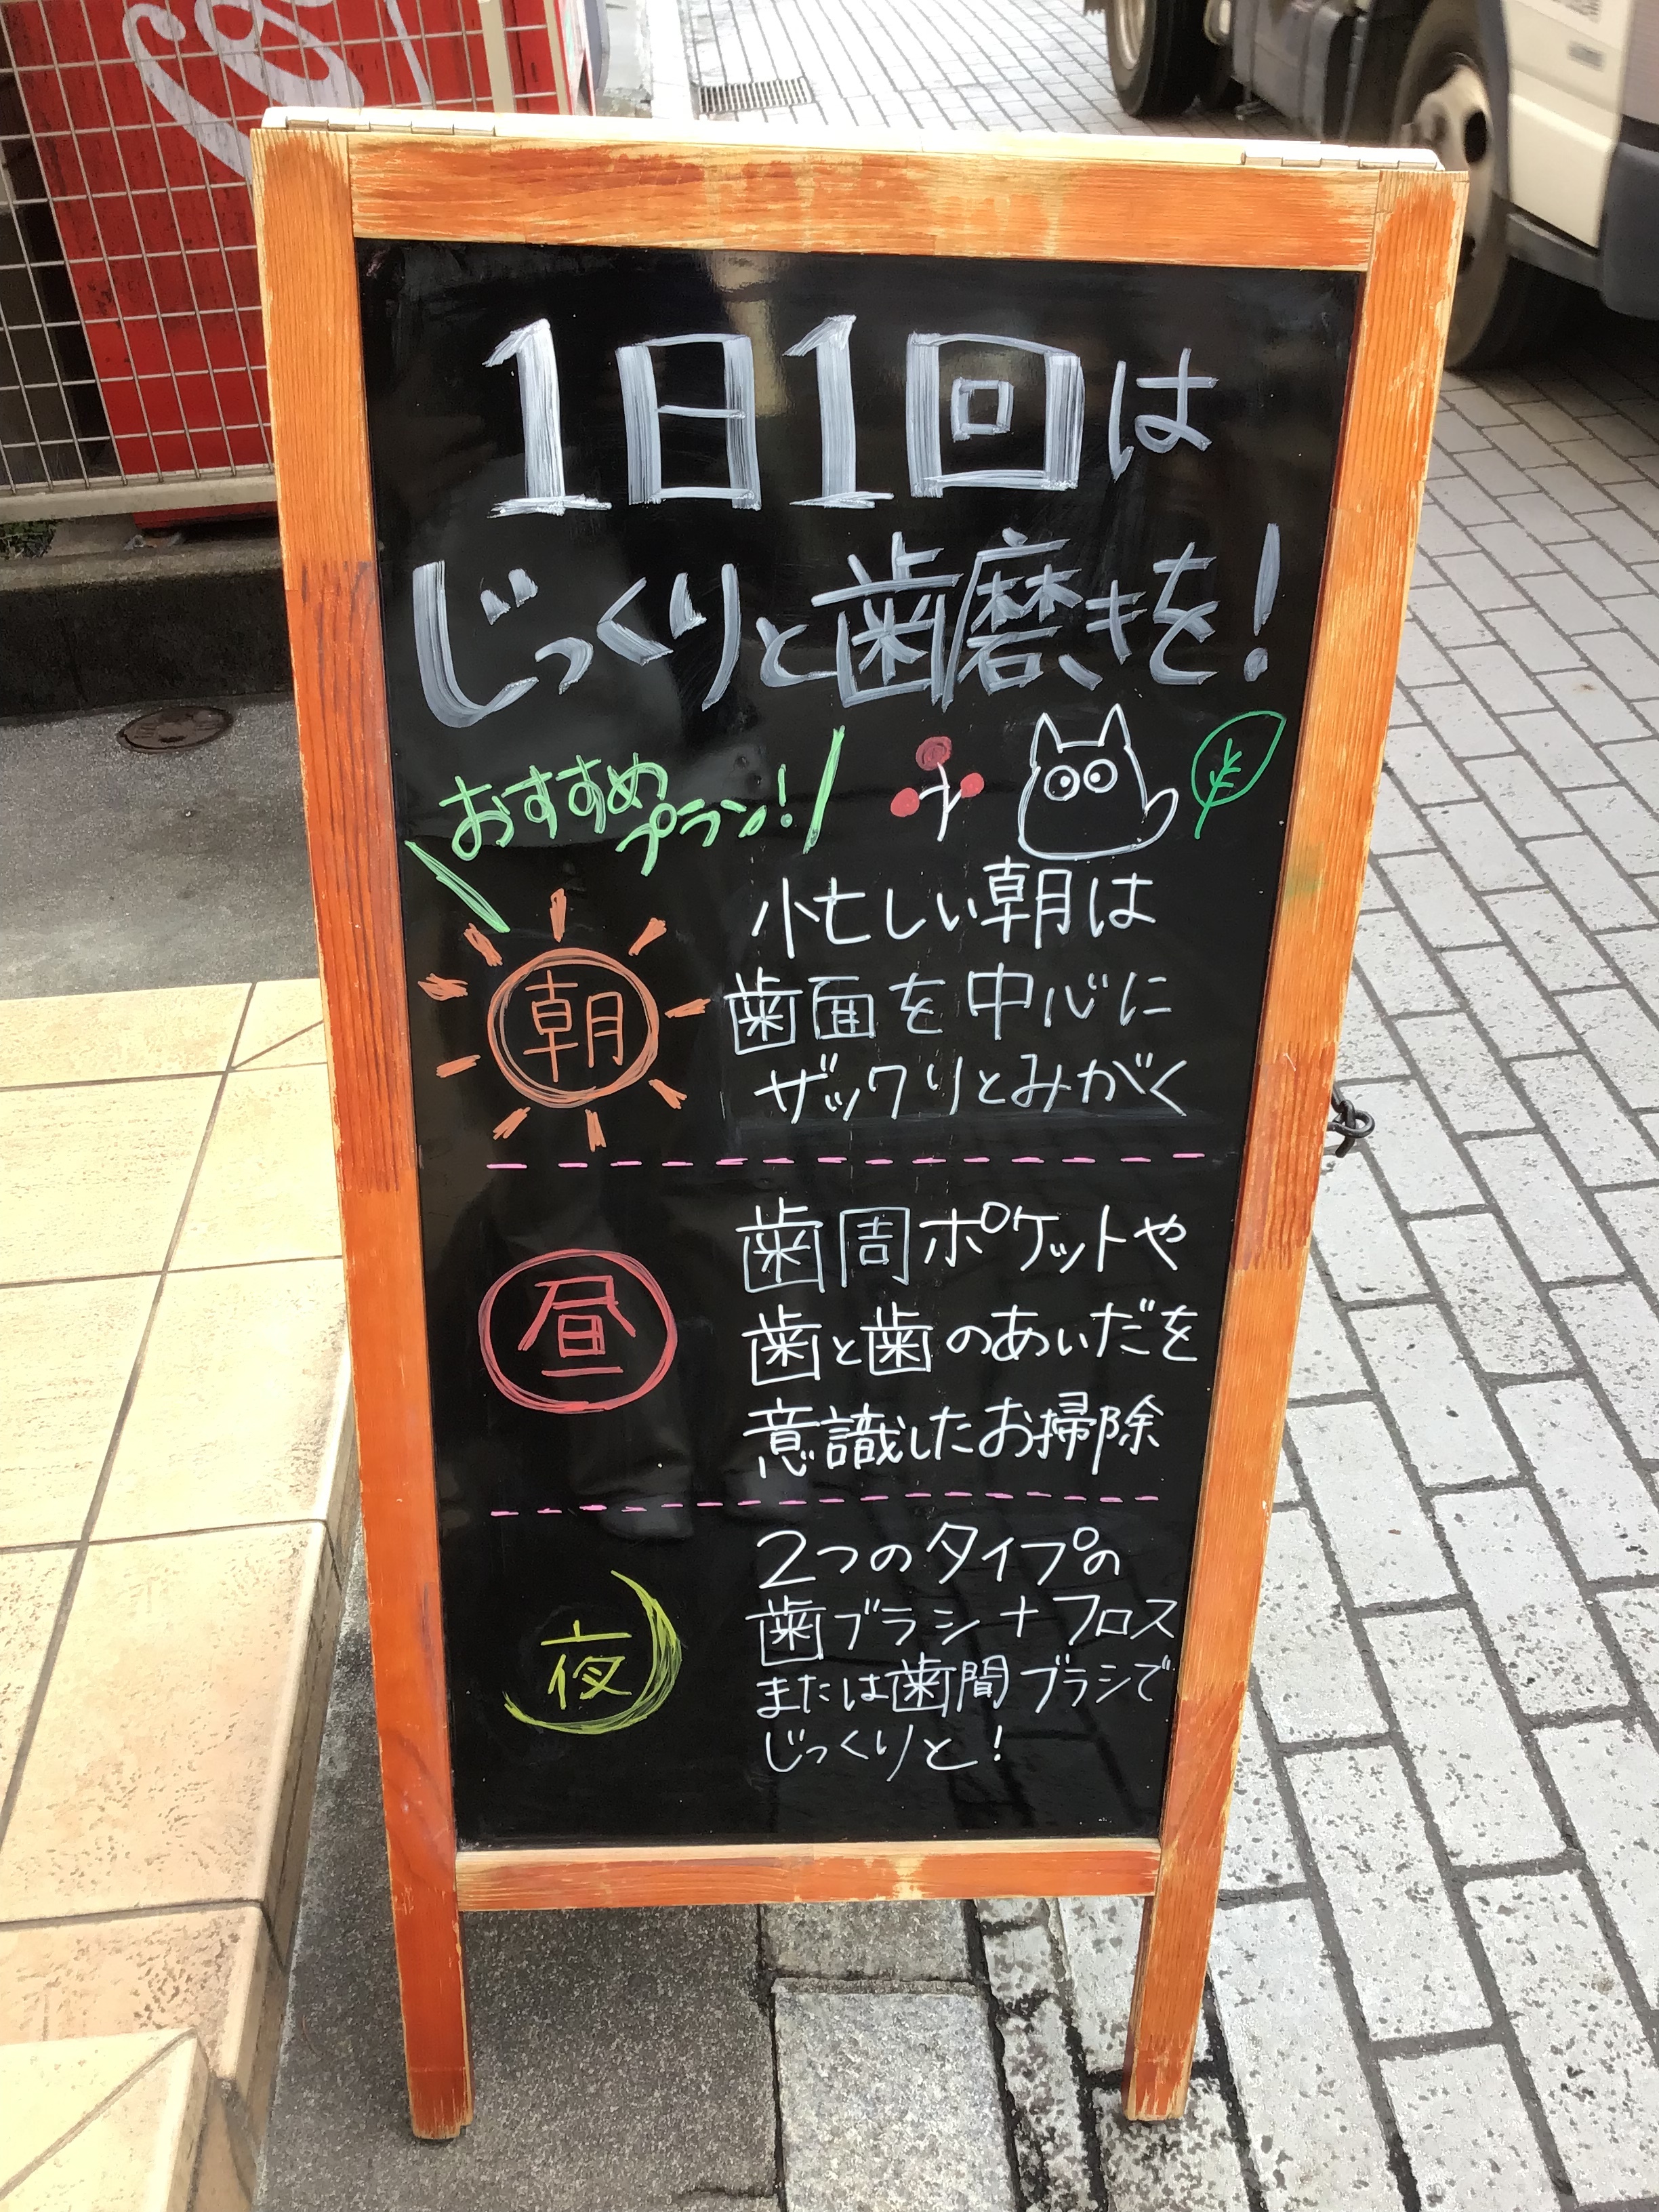 1日1回は
じっくりと歯磨きを!
おすすめ
プラン!
朝
忙しい朝は
歯面を中心に
ザックリとみがく
昼
歯周ポケットや
歯と歯のあいだを
意識したお掃除
夜
2つのタイプの
歯ブラシ+フロス
または歯間ブラシで
じっくりと!